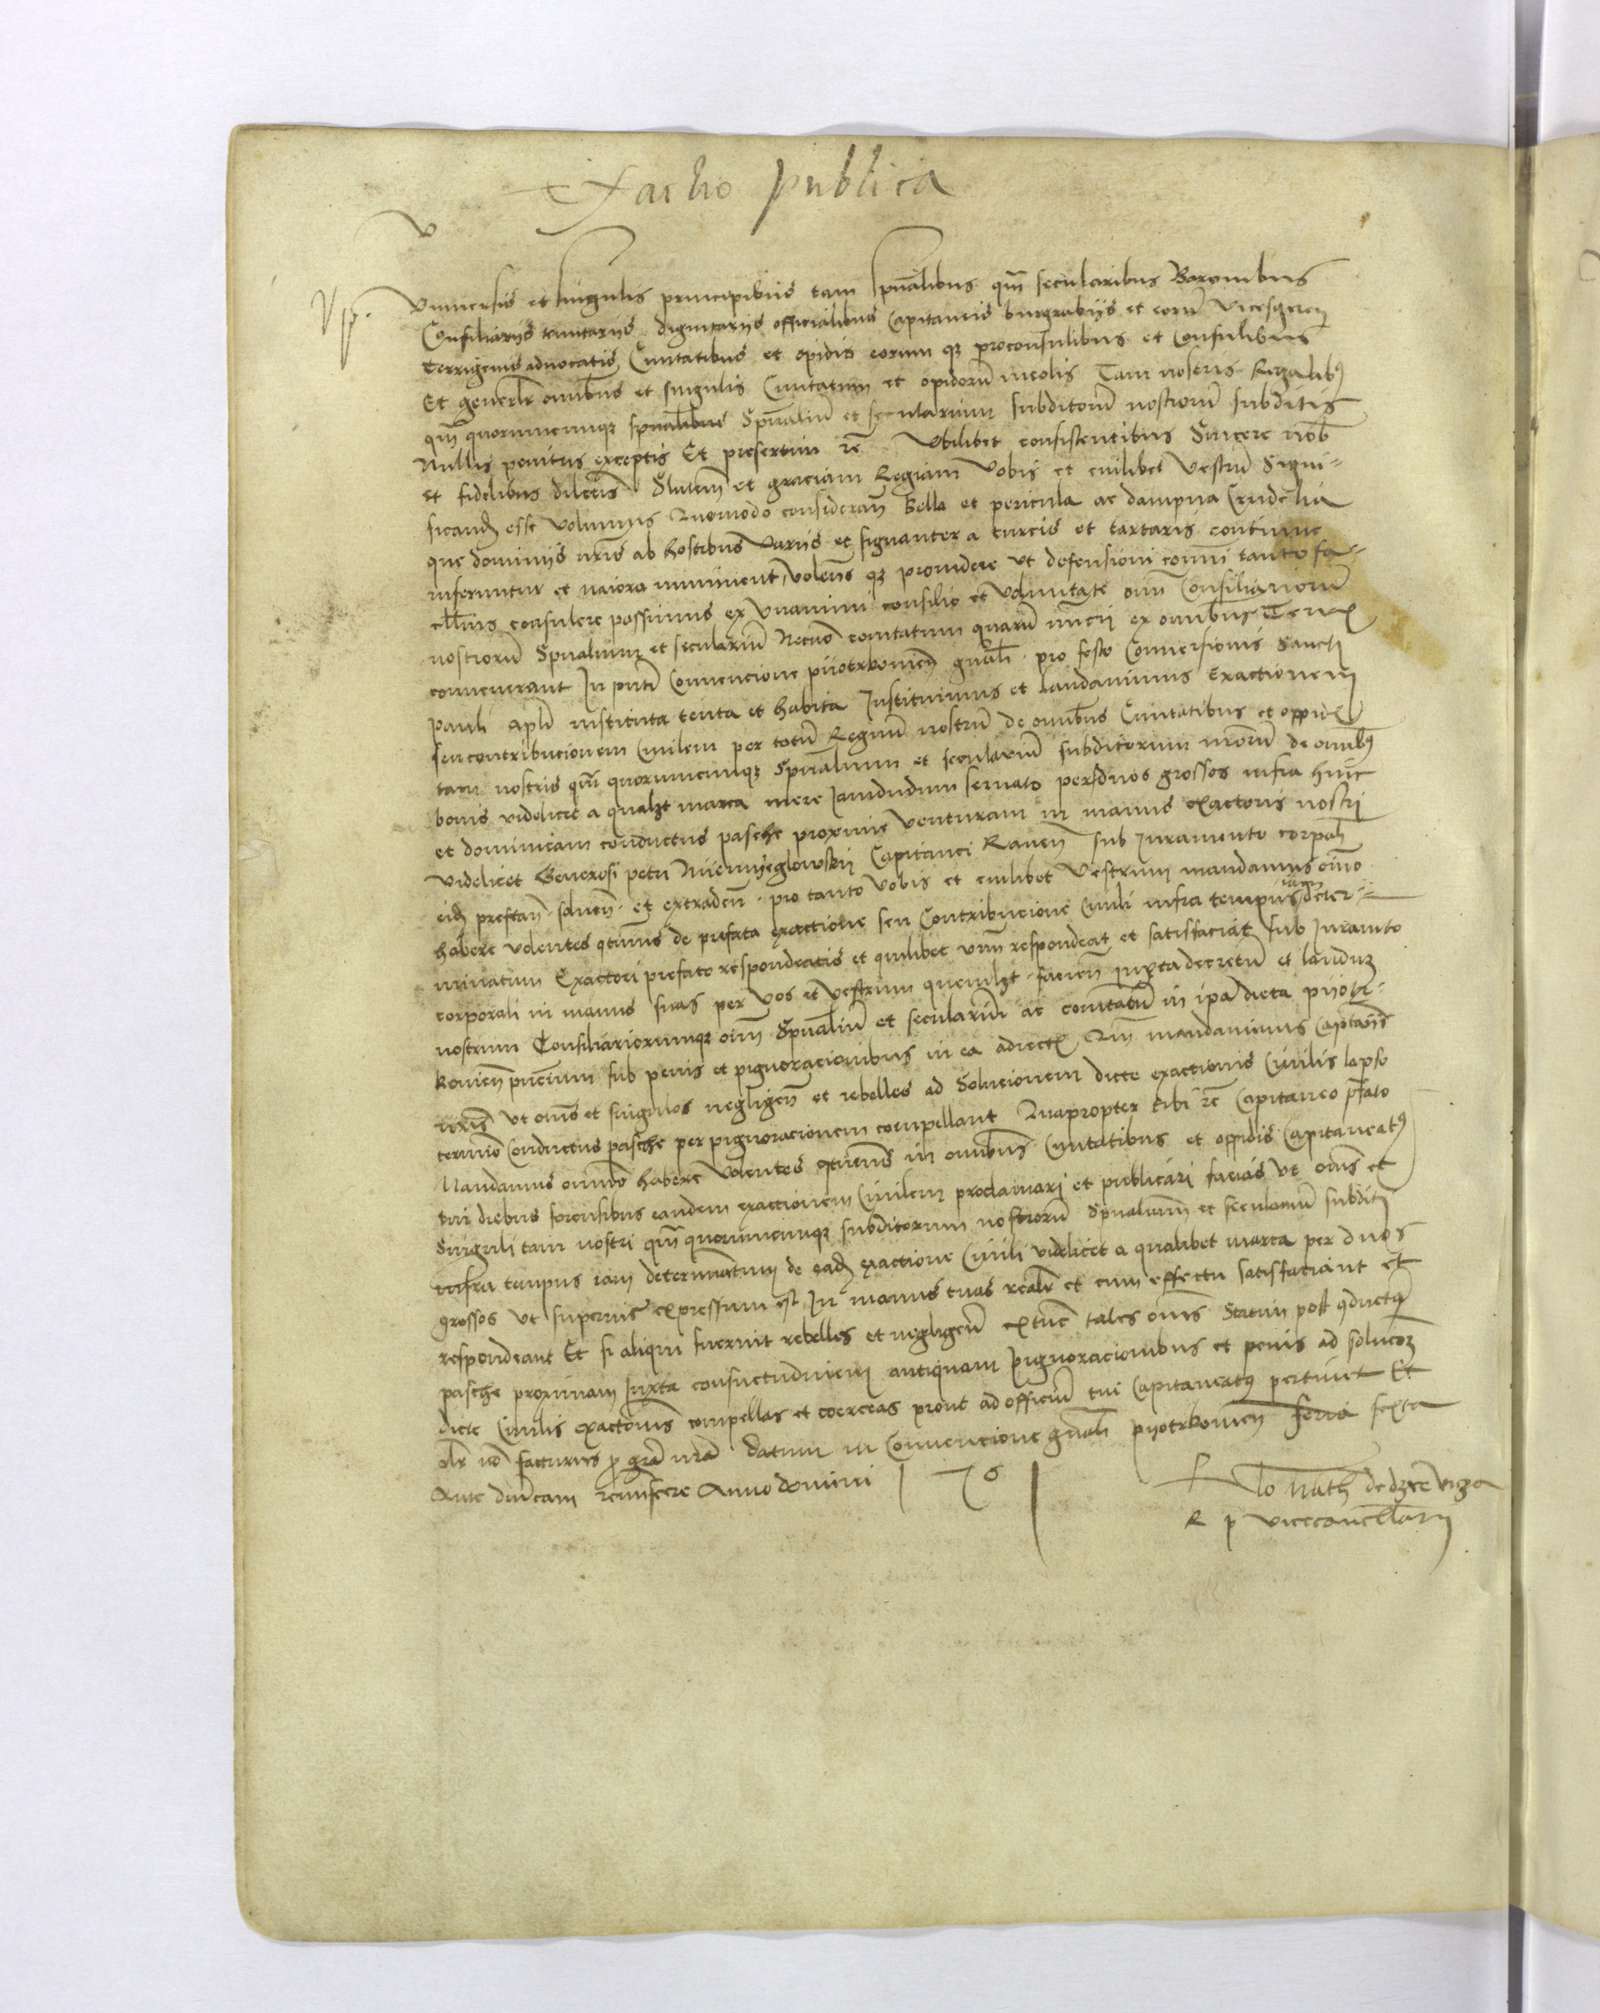 Exactio publica
Vniuersis et singulis principibus tam spualibus qm secularibus Baronibus
Consiliariis dignitariis officialibus Capitaneis burgrabiis et eorum vicesgeren
terrigenis aduocatis Ciuitatibus et opidis eorumqz proconsulibus et Consulibus
Et generalr omibus et singulis Ciuitatum et opidorum incolis Tam nostris Regalibus
qm quorumcumqz Spualium et secularium subditorum nostrorum subditis
Nullis penitus exceptis Et presertim rc Vbilibet consistentibus Sincere nob
et fidelibus dilectis Salutem et graciam Regiam Vobis et cuilibet vestrum Signi-
ficand esse volumus Quomodo consideran bella et pericula ac dampna Crudelia
que dominiis nris ab hostibus variis et signanter a turcis et tartaris continue
inferuntur et maiora imminent volens qz prouidere vt defensioni comi tanto fa-
cilius consulere possimus ex vnanimi consilio et voluntate oim Consiliariorum
nostrorum Spualium et secularium Necno comitatum quarum nuncii ex omibus Terris
conuenerant In pnti Conuencione piotrkouien gnali pro festo Conuersionis Sancti
Pauli apli instituta tenta et habita Instituimus et laudauimus Exactionem
seu contribucionem Ciuilem per totum Regnum nostrum de omibus Ciuitatibus et oppidis
tam nostris qm quorumcumqz Spualium et secularium subditorum nrorum de omibus
bonis videlicet a qualzt marca more Iamdudum seruato per duos grossos infra hinc
et dominicam conductus pasche proxime venturam in manus exactoris nostri
videlicet Generosi petri Capitanei Rauen sub Iuramento corpali
eidem prestan soluen et extraden pro tanto vobis et cuilibet vestrum mandamus oimo
habere volentes qtinus de prefata exactione seu Contribucione Ciuili infra tempus iam deter-
minatum Exactori prefato respondeatis et quilibet vrm respondeat et satisfaciat sub Iuramto
corporali in manus suas per vos et vestrum quemlzt facien iuxta decretum et laudum
nostrum Consiliariorumqz oim Spualium et secularium ac comitatum in ipa dieta piotr-
kouien sub penis et pignoracionibus in ea adiectis Qm mandauimus Capitaneis
vt omes et singulos negligen et rebelles ad Solucionem dicte exactionis Ciuilis lapso
termino Conductus pasche per pignoracionem compellant Quapropter tibi rc Capitaneo pfato
Mandamus omnino habere volentes qtinus in omibus Ciuitatibus et oppidis Capitaneatus
tui diebus forensibus eandem exactionem Ciuilem proclamari et publicari facias vt omes et
Singuli tam nostri qm quorumcumqz subditorum nostrorum Spualium et secularium subditi
infra tempus iam determinatum de eadem exactione Ciuili videlicet a qualibet marca per duos
grossos vt superius expressum est In manus tuas realr et cum effectu satisfaciant et
respondeant Et si aliqui fuerint rebelles et negligen extunc tales omes Statim post conductum
pasche proximam Iuxta consuetudinem antiquam pignoracionibus et penis ad solucoem
dicte Ciuilis exactionis compellas et coerceas prout ad officium tui Capitaneatus pertinet Et
alr no facturus p gra nra Datum in Conuencione gnali piotrkouien feria sexta
Ante dnicam reminiscere Anno domini | 76 |
R p vicecancellarii